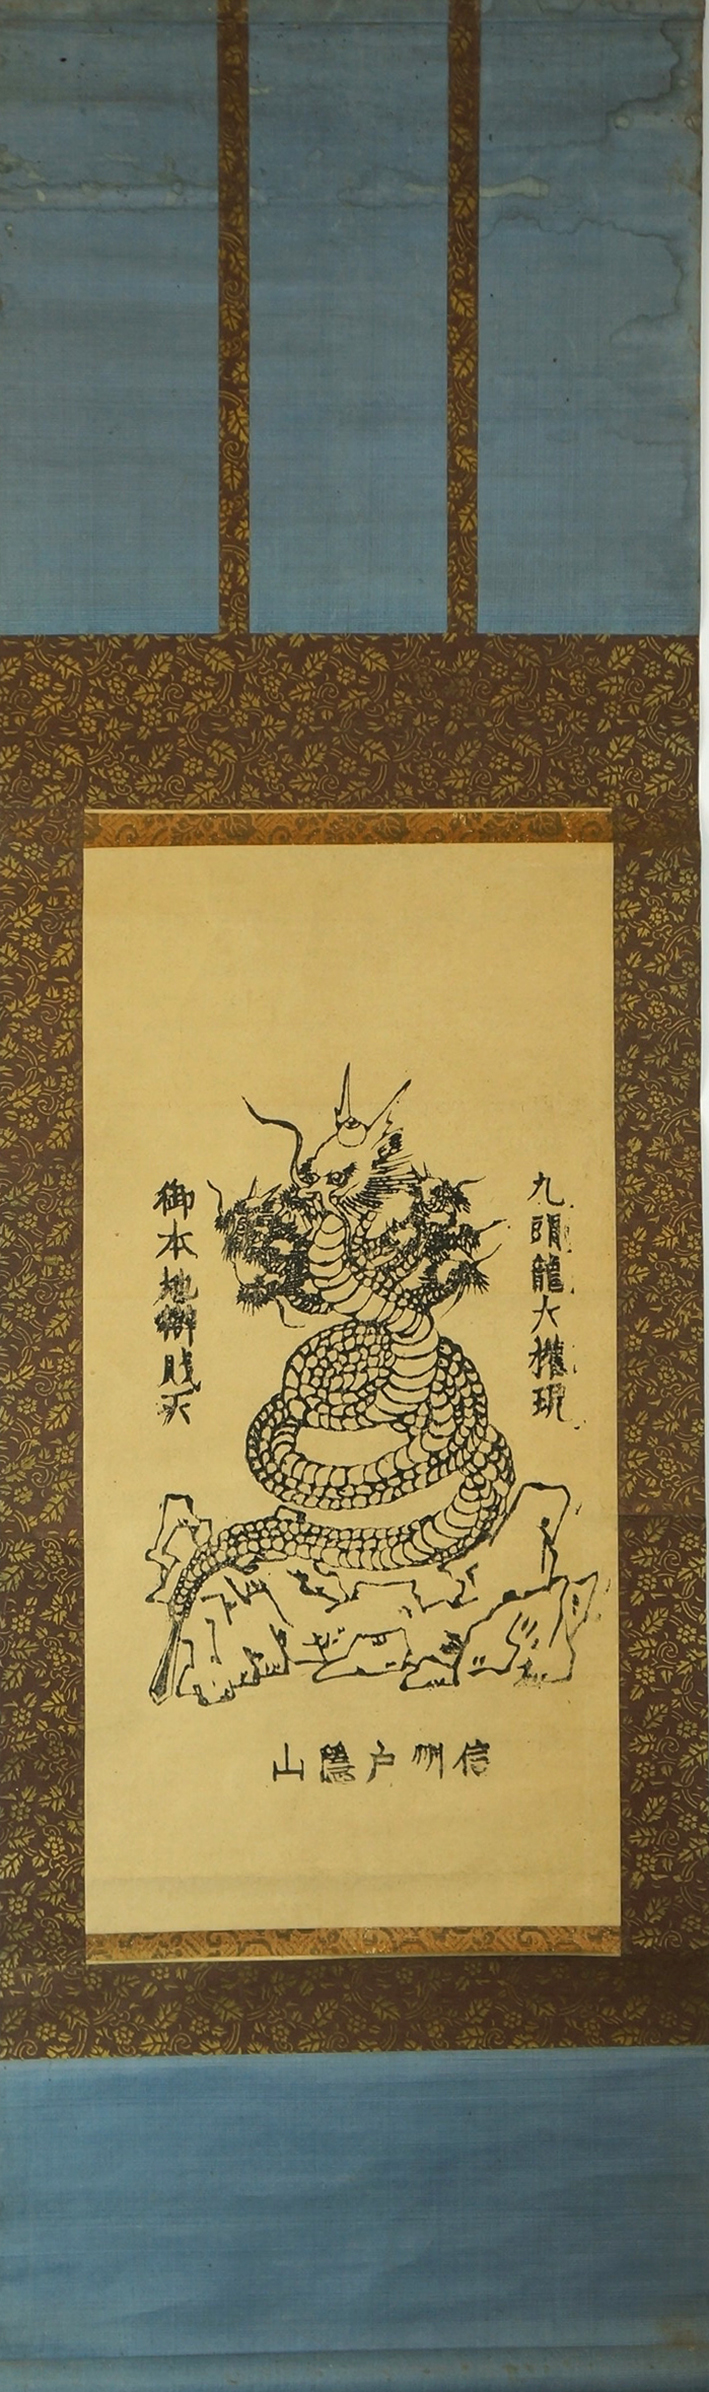 九頭龍大権現
御本地辨財天
信州戸隠山